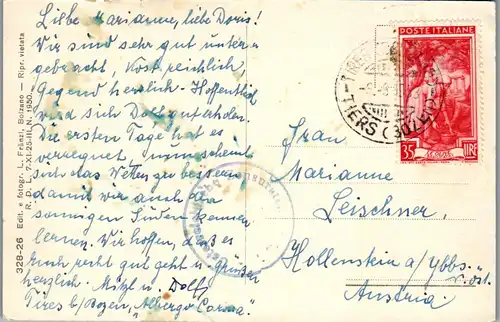 Liebe Marianne, liebe Doris!
Wir sind sehr gut unter-
gebracht, Kost reichlich
Gegend herrlich. Hoffentlich
sind Doll gut
Die ersten Tage hat es
verregnet nun scheint
sich das Wetter zu bessern
damit wir auch den
sonnigen Süden kennen
lernen. Wir hoffen, daß es
Euch recht gut geht u. grüßen
herzlich Mitzl u. Dolf
Tires b/Bozen, "Albergo Corona"
328-26 Edit. e fotogr. L. Fränzl, Bolzano — Ripr. vietata
POSTE ITALIANE
35 LIRE
TIERS (BOLZANO)
Frau
Marianne
Leischner
Hollenstein a/Ybbs
n.öst.
Austria